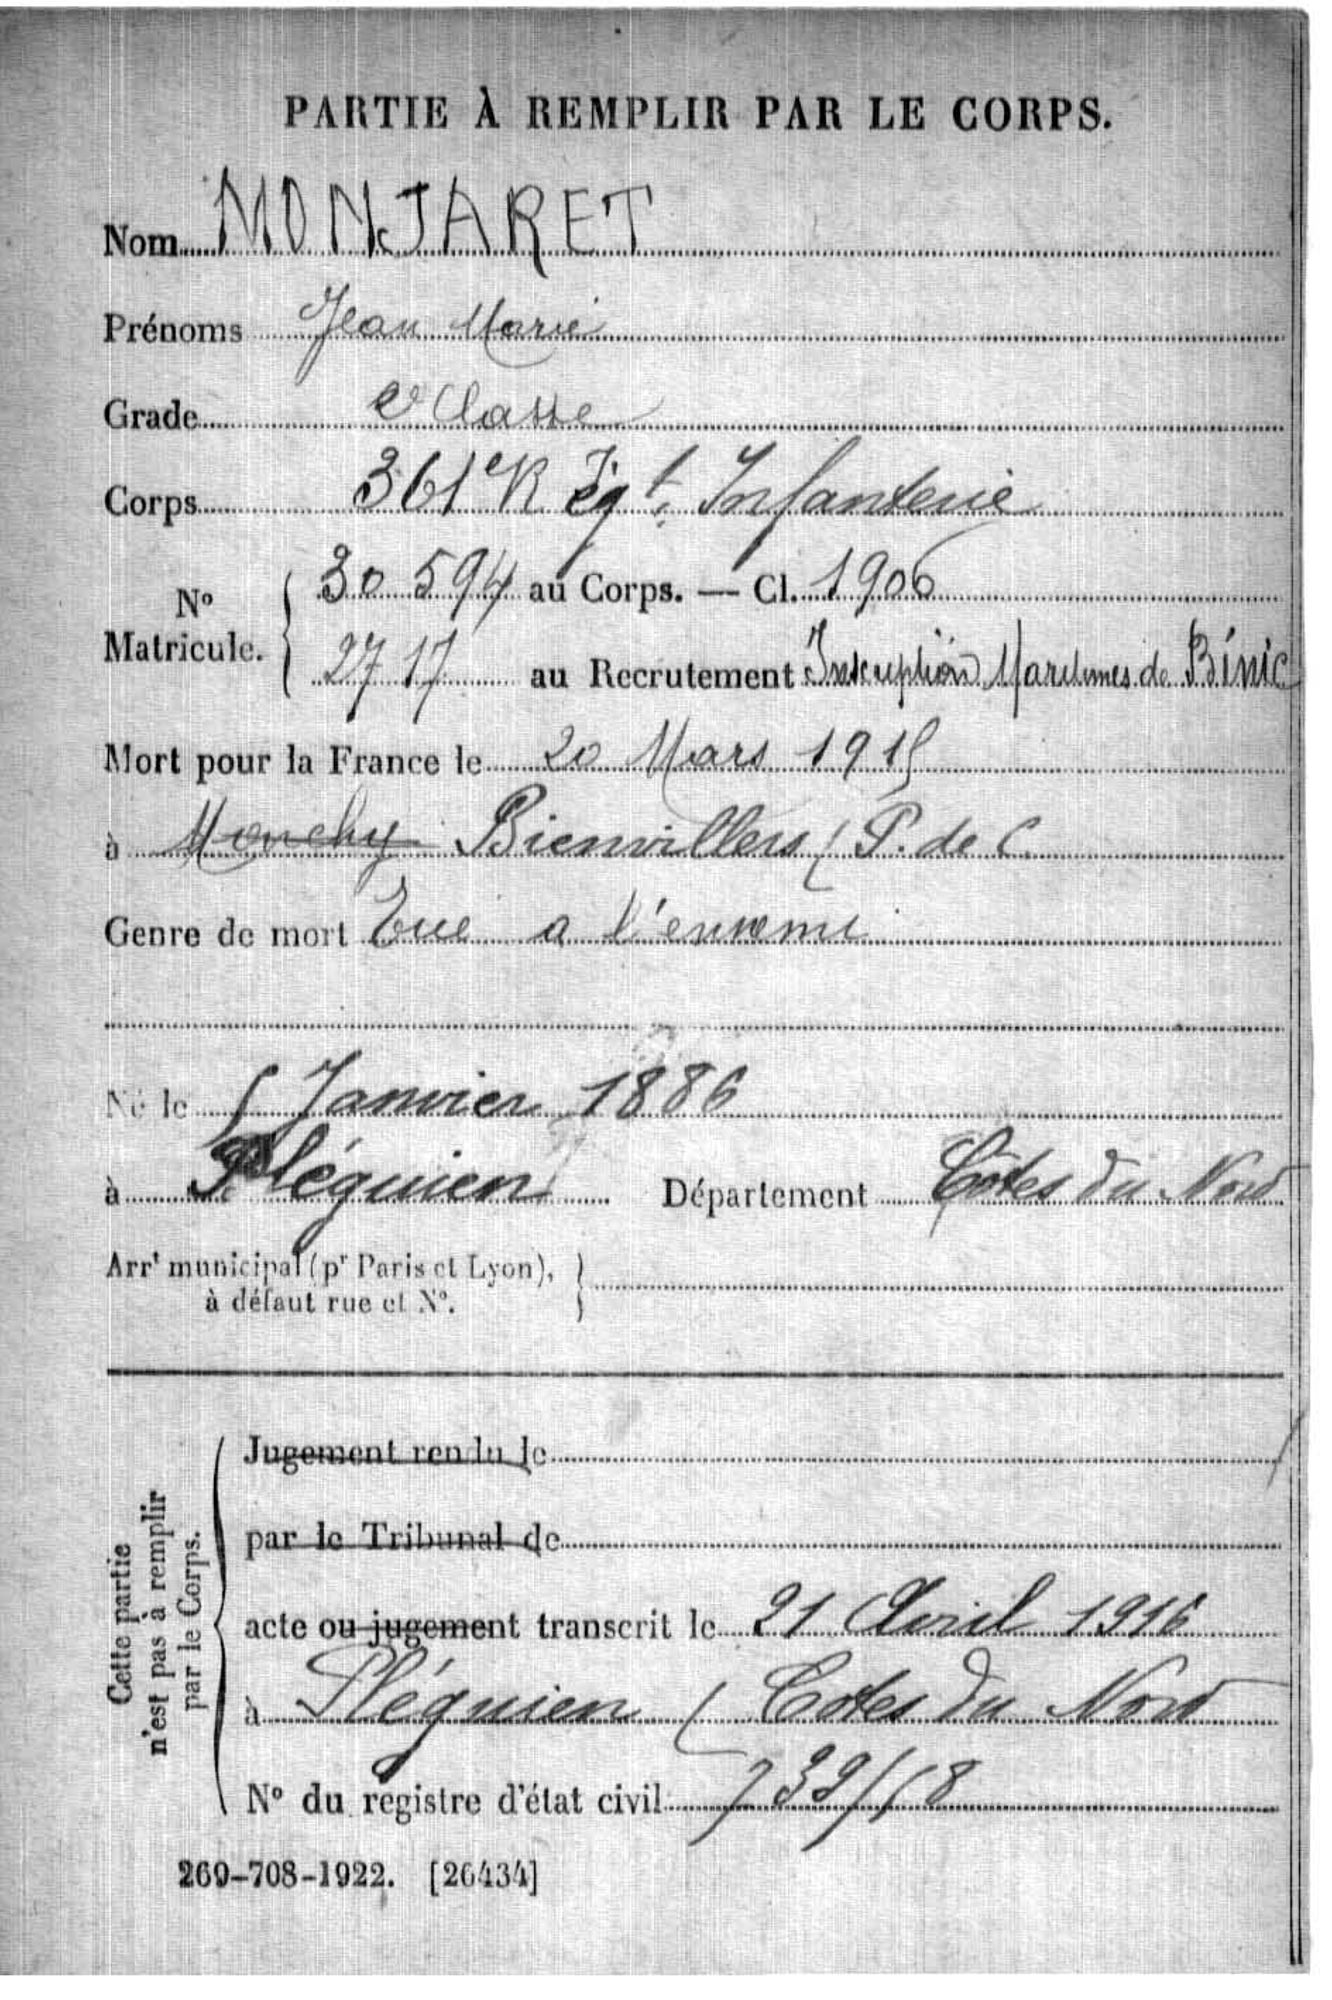 PARTIE À REMPLIR PAR LE CORPS.
Nom MONJARET
Prénoms Jean Marie
Grade 2e Classe
Corps 361e Régt Infanterie
No Matricule. { 30 594 au Corps. — Cl. 1906
2717 au Recrutement Inscription Maritimes de Binic
Mort pour la France le 20 Mars 1915
à Monchy Bienvillers (P. de C.
Genre de mort Tué a l'ennemi
Né le 5 Janvier 1886
à Pléguien Département Côtes du Nord
Arrt municipal (pr Paris et Lyon), }
à défaut rue et No.
Cette partie
n'est pas à remplir
par le Corps.
Jugement rendu le
par le Tribunal de
acte ou jugement transcrit le 21 Avril 1916
à Pléguien (Côtes du Nord
No du registre d'état civil 739/18
269-708-1922. [26434]